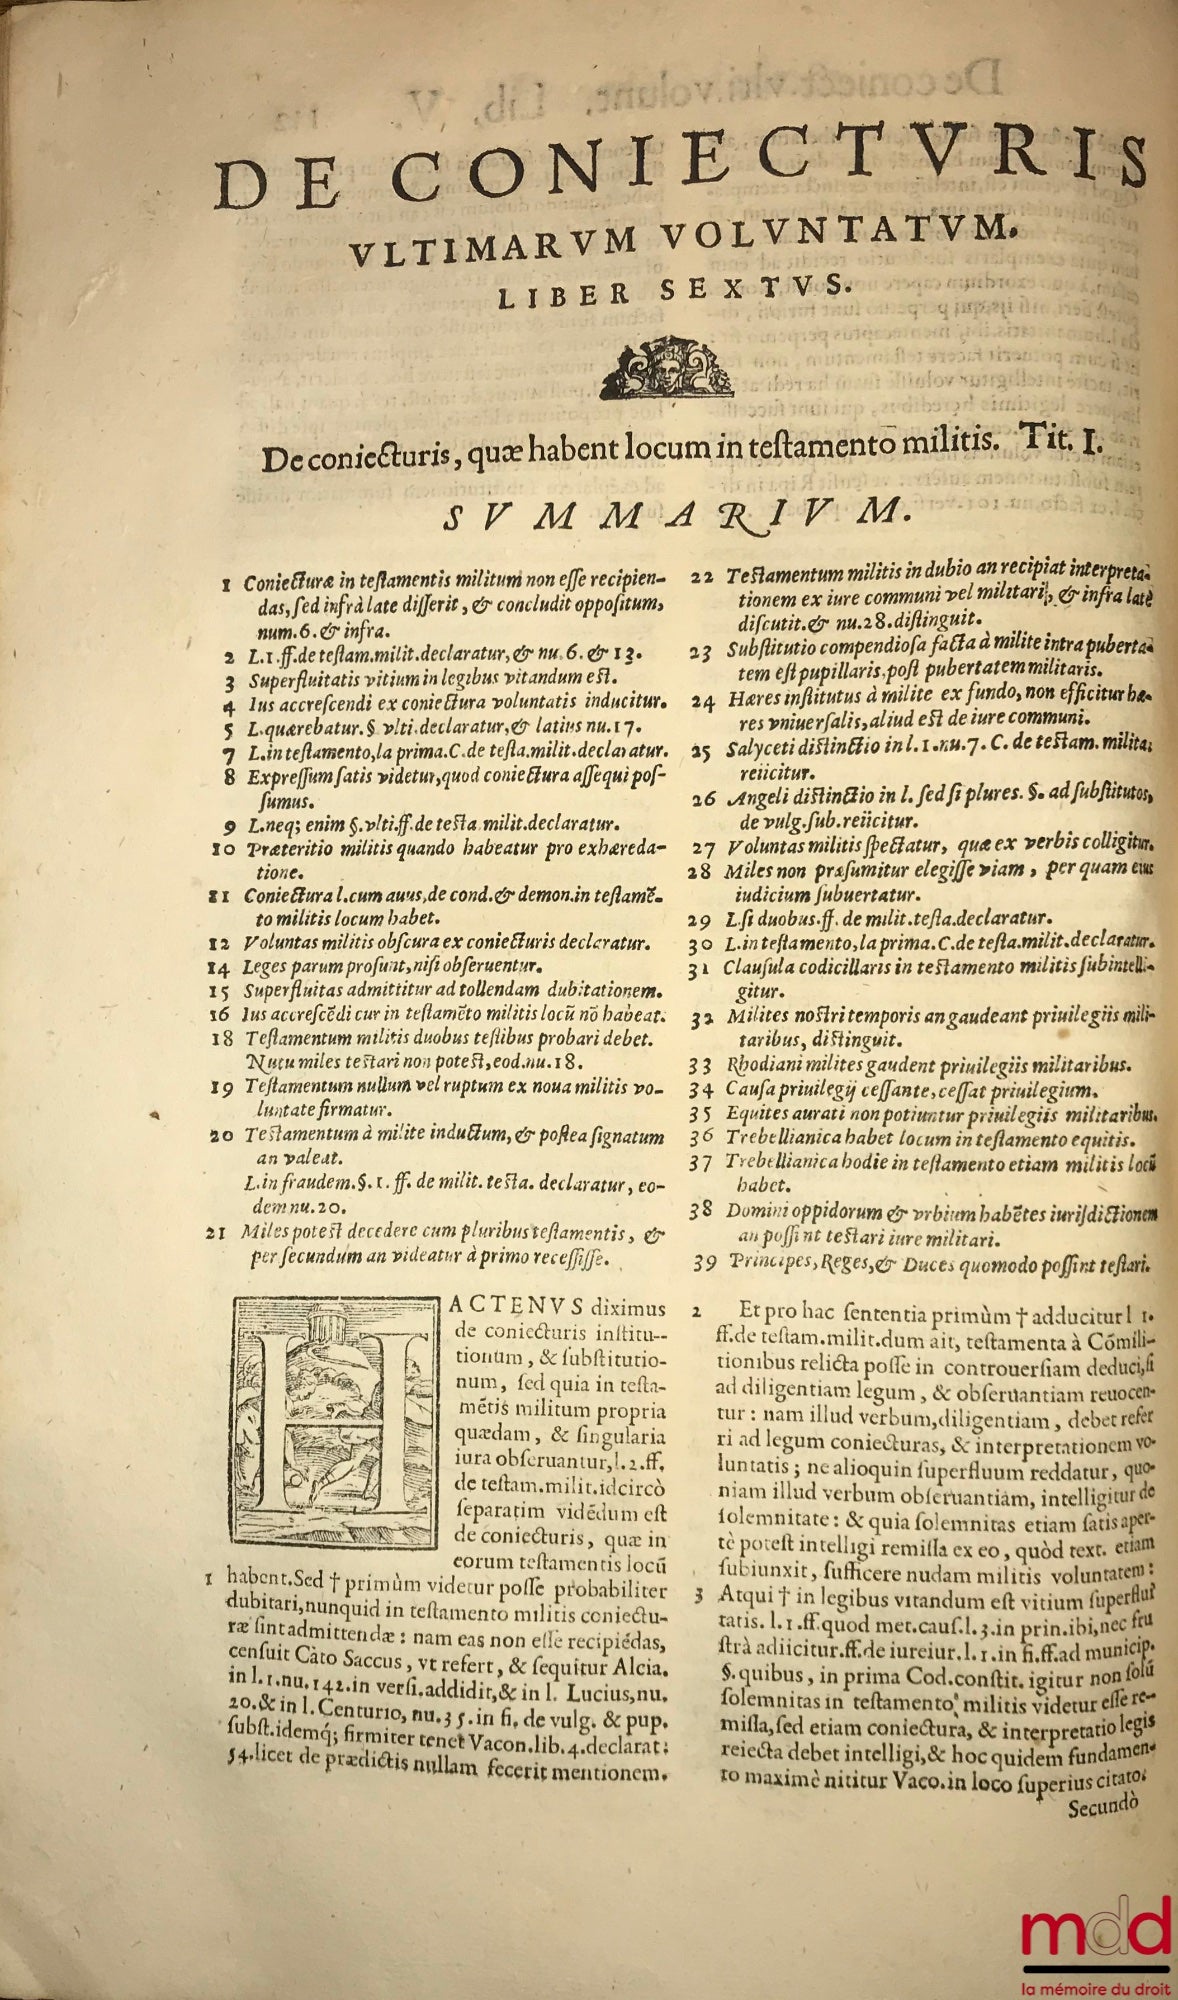 DE CONIECTVRIS
VLTIMARVM VOLVNTATVM.
LIBER SEXTVS.
De coniecturis, quæ habent locum in testamento militis. Tit. I.
SVMMARIVM.
1 Coniecturæ in testamentis militum non esse recipien-
das, sed infrà late disserit, & concludit oppositum,
num. 6. & infra.
2 L. 1. ff. de testam. milit. declaratur, & nu. 6. & 13.
3 Superfluitatis vitium in legibus vitandum est.
4 Ius accrescendi ex coniectura voluntatis inducitur.
5 L. quærebatur. §. vlti. declaratur, & latius nu. 17.
7 L. in testamento, la prima. C. de testa. milit. declaratur.
8 Expressum satis videtur, quod coniectura assequi pos-
sumus.
9 L. neq; enim §. vlti. ff. de testa. milit. declaratur.
10 Præteritio militis quando habeatur pro exhæreda-
tione.
11 Coniectura l. cum auus, de cond. & demon. in testamē-
to militis locum habet.
12 Voluntas militis obscura ex coniecturis declaratur.
14 Leges parum prosunt, nisi obseruentur.
15 Superfluitas admittitur ad tollendam dubitationem.
16 Ius accrescēdi cur in testamēto militis locū nō habeat.
18 Testamentum militis duobus testibus probari debet.
Nutu miles testari non potest, eod. nu. 18.
19 Testamentum nullum vel ruptum ex noua militis vo-
luntate firmatur.
20 Testamentum à milite inductum, & postea signatum
an valeat.
L. in fraudem. §. 1. ff. de milit. testa. declaratur, eo-
dem nu. 20.
21 Miles potest decedere cum pluribus testamentis, &
per secundum an videatur à primo recessisse.
22 Testamentum militis in dubio an recipiat interpreta-
tionem ex iure communi vel militari, & infra latè
discutit. & nu. 28. distinguit.
23 Substitutio compendiosa facta à milite intra puberta-
tem est pupillaris, post pubertatem militaris.
24 Hæres institutus à milite ex fundo, non efficitur hæ-
res vniuersalis, aliud est de iure communi.
25 Salyceti distinctio in l. 1. nu. 7. C. de testam. milita.
reiicitur.
26 Angeli distinctio in l. sed si plures. §. ad substitutos,
de vulg. sub. reiicitur.
27 Voluntas militis spectatur, quæ ex verbis colligitur.
28 Miles non præsumitur elegisse viam, per quam eius
iudicium subuertatur.
29 L. si duobus. ff. de milit. testa. declaratur.
30 L. in testamento, la prima. C. de testa. milit. declaratur.
31 Clausula codicillaris in testamento militis subintelli-
gitur.
32 Milites nostri temporis an gaudeant priuilegiis mili-
taribus, distinguit.
33 Rhodiani milites gaudent priuilegiis militaribus.
34 Causa priuilegij cessante, cessat priuilegium.
35 Equites aurati non potiuntur priuilegiis militaribus.
36 Trebellianica habet locum in testamento equitis.
37 Trebellianica hodie in testamento etiam militis locū
habet.
38 Domini oppidorum & vrbium habētes iurisdictionem
an possint testari iure militari.
39 Principes, Reges, & Duces quomodo possint testari.
HACTENVS diximus
de coniecturis institu-
tionum, & substitutio-
num, sed quia in testa-
mētis militum propria
quædam, & singularia
iura obseruantur, l. 2. ff.
de testam. milit. idcircò
separatim vidēdum est
de coniecturis, quæ in
eorum testamentis locū
1 habent. Sed † primùm videtur posse probabiliter
dubitari, nunquid in testamento militis coniectu-
ræ sint admittendæ: nam eas non esse recipiēdas,
censuit Càto Saccus, vt refert, & sequitur Alcia.
in l. 1. nu. 142. in versi. addidit, & in l. Lucius, nu.
20. & in l. Centurio, nu. 35. in fi. de vulg. & pup.
subst. idemq; firmiter tenet Vacon. lib. 4. declarat:
54. licet de prædictis nullam fecerit mentionem.
2 Et pro hac sententia primùm † adducitur l 1.
ff. de testam. milit. dum ait, testamenta à Cōmili-
tionibus relicta posse in controuersiam deduci, si
ad diligentiam legum, & obseruantiam reuocen-
tur: nam illud verbum, diligentiam, debet refer
ri ad legum coniecturas, & interpretationem vo-
luntatis; ne alioquin superfluum reddatur, quo-
niam illud verbum obseruantiam, intelligitur de
solemnitate: & quia solemnitas etiam satis aper-
tè potest intelligi remissa ex eo, quòd text. etiam
subiunxit, sufficere nudam militis voluntatem:
3 Atqui † in legibus vitandum est vitium superflui
tatis. l. 1. ff. quod met. caus. l. 3. in prin. ibi, nec fru
strà adiicitur. ff. de iureiur. l. 1. in fi. ff. ad municip.
§. quibus, in prima Cod. constit. igitur non solū
solemnitas in testamento militis videtur esse re-
missa, sed etiam coniectura, & interpretatio legis
reiecta debet intelligi, & hoc quidem fundamen-
to maximè nititur Vaco. in loco superius citato.
Secundò
mdd
la mémoire du droit